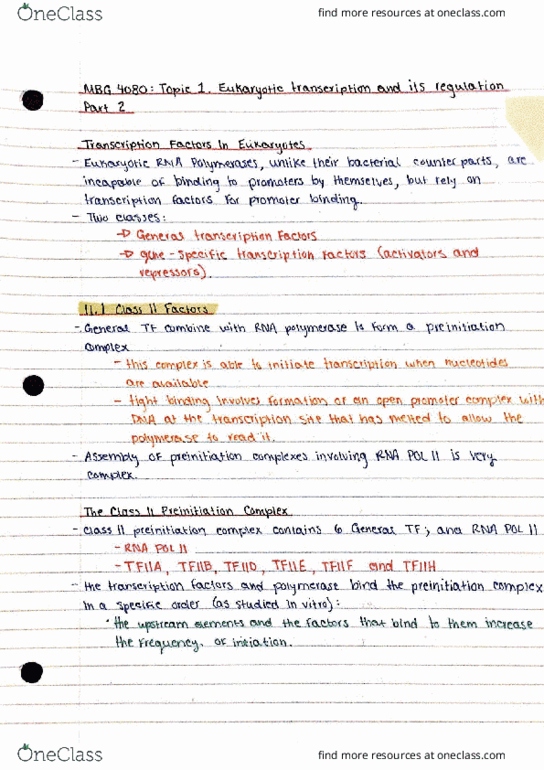 OneClass
find more resources at oneclass.com
MBG 4080: Topic 1. Eukaryotic transcription and its regulation
Part 2
Transcription Factors In Eukaryotes
- Eukaryotic RNA Polymerases, unlike their bacterial counter parts, are
incapable of binding to promoters by themselves, but rely on
transcription factors for promoter binding.
- Two classes:
→ General transcription Factors
→ gene-specific transcription Factors (activators and
repressors).
11.1 Class II Factors
- General TF combine with RNA polymerase to form a preinitiation
complex
- this complex is able to initiate transcription when nucleotides
are available
- tight binding involves formation of an open promoter complex with
DNA at the transcription site that has melted to allow the
polymerase to read it.
- Assembly of preinitiation complexes involving RNA POL II is very
complex.
The Class II Preinitiation Complex
- Class II preinitiation complex contains 6 General TF; and RNA POL II
- RNA POL II
- TFIIA, TFIIB, TFIID, TFIIE, TFIIF and TFIIH
- the transcription factors and polymerase bind the preinitiation complex
in a specific order (as studied in vitro):
• the upstream elements and the factors that bind to them increase
the frequency. of initiation.
OneClass
find more resources at oneclass.com